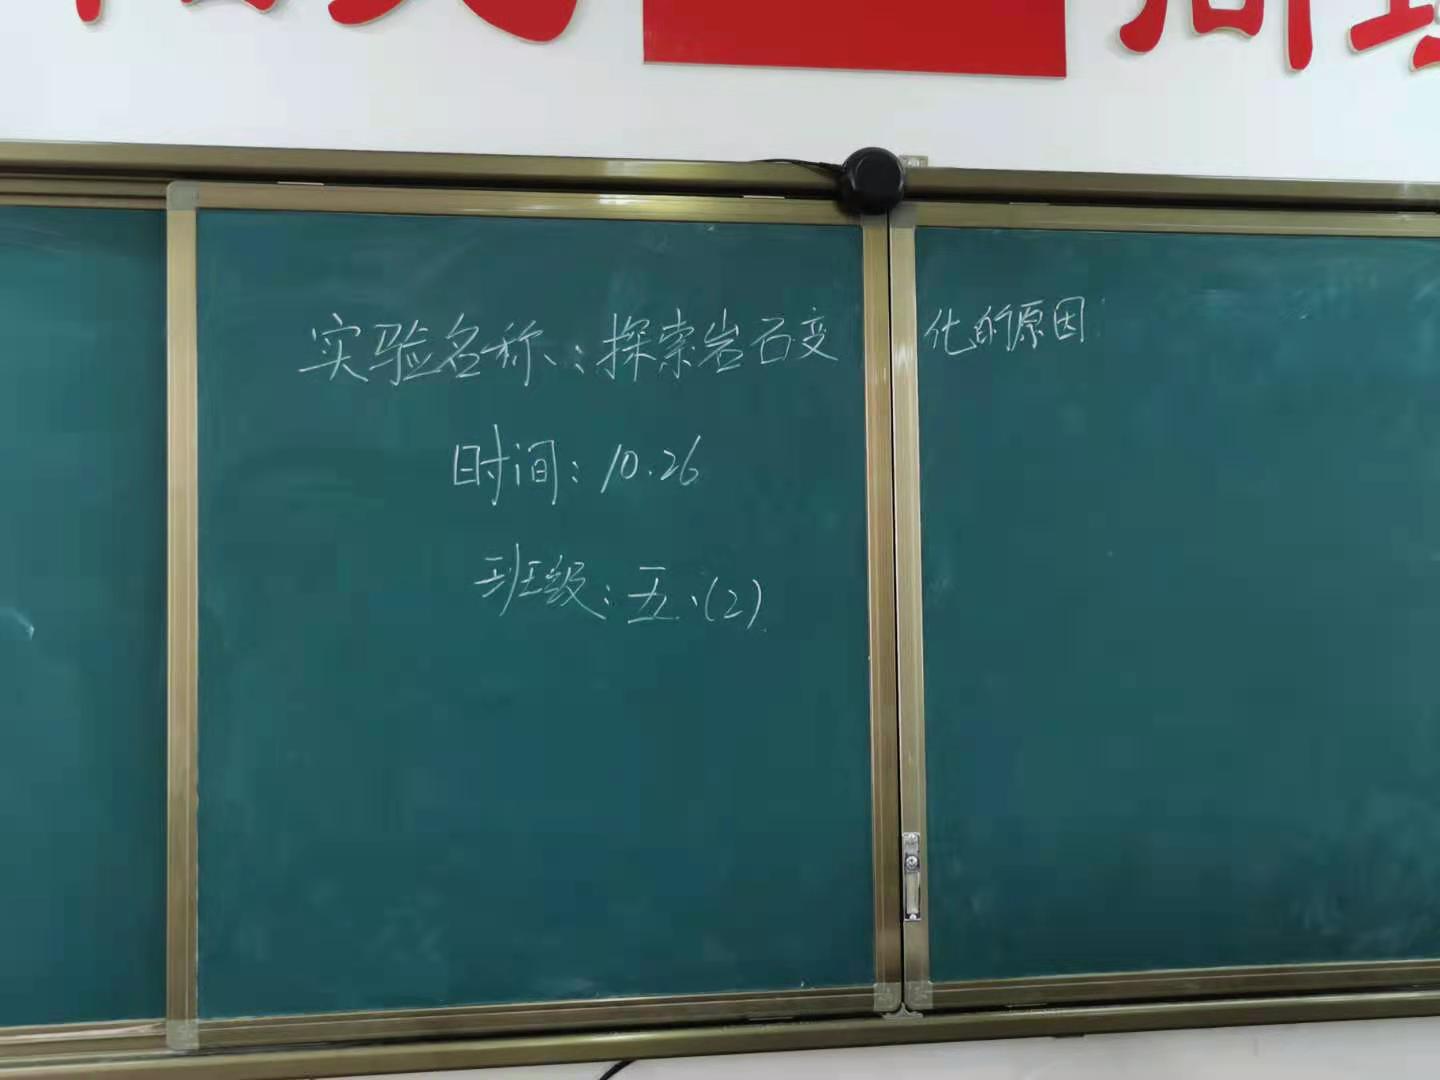 实验名称:探索岩石变化的原因
时间:10.26
班级:五、(2)